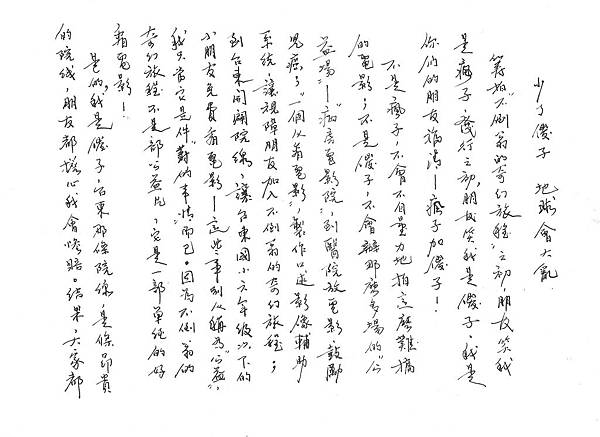 少了傻子 地球會大亂
籌拍"不倒翁的奇幻旅程"之初,朋友笑我
是瘋子,發行之初,朋友笑我是傻子,我是
你們的朋友稱謂——瘋子加傻子!
不是瘋子,不會不自量力地拍這麼難搞
的電影;不是傻子,不會辦那麼多場的"公
益場"——"病房電影院",到醫院放電影鼓勵
兒癌;"一個人看電影",製作口述影像輔助
系統,讓視障朋友加入不倒翁的奇幻旅程;
到台東開闢院線,讓台東國小六年級以下的
小朋友免費看電影——這些事別人稱為"公益",
我只當它是件"對的事情"而已。因為不倒翁的
奇幻旅程不是部公益片,它是一部單純的好
看電影!
是的,我是傻子,台東那條院線,是條昂貴
的院線,朋友都擔心我會慘賠。結果,大家都